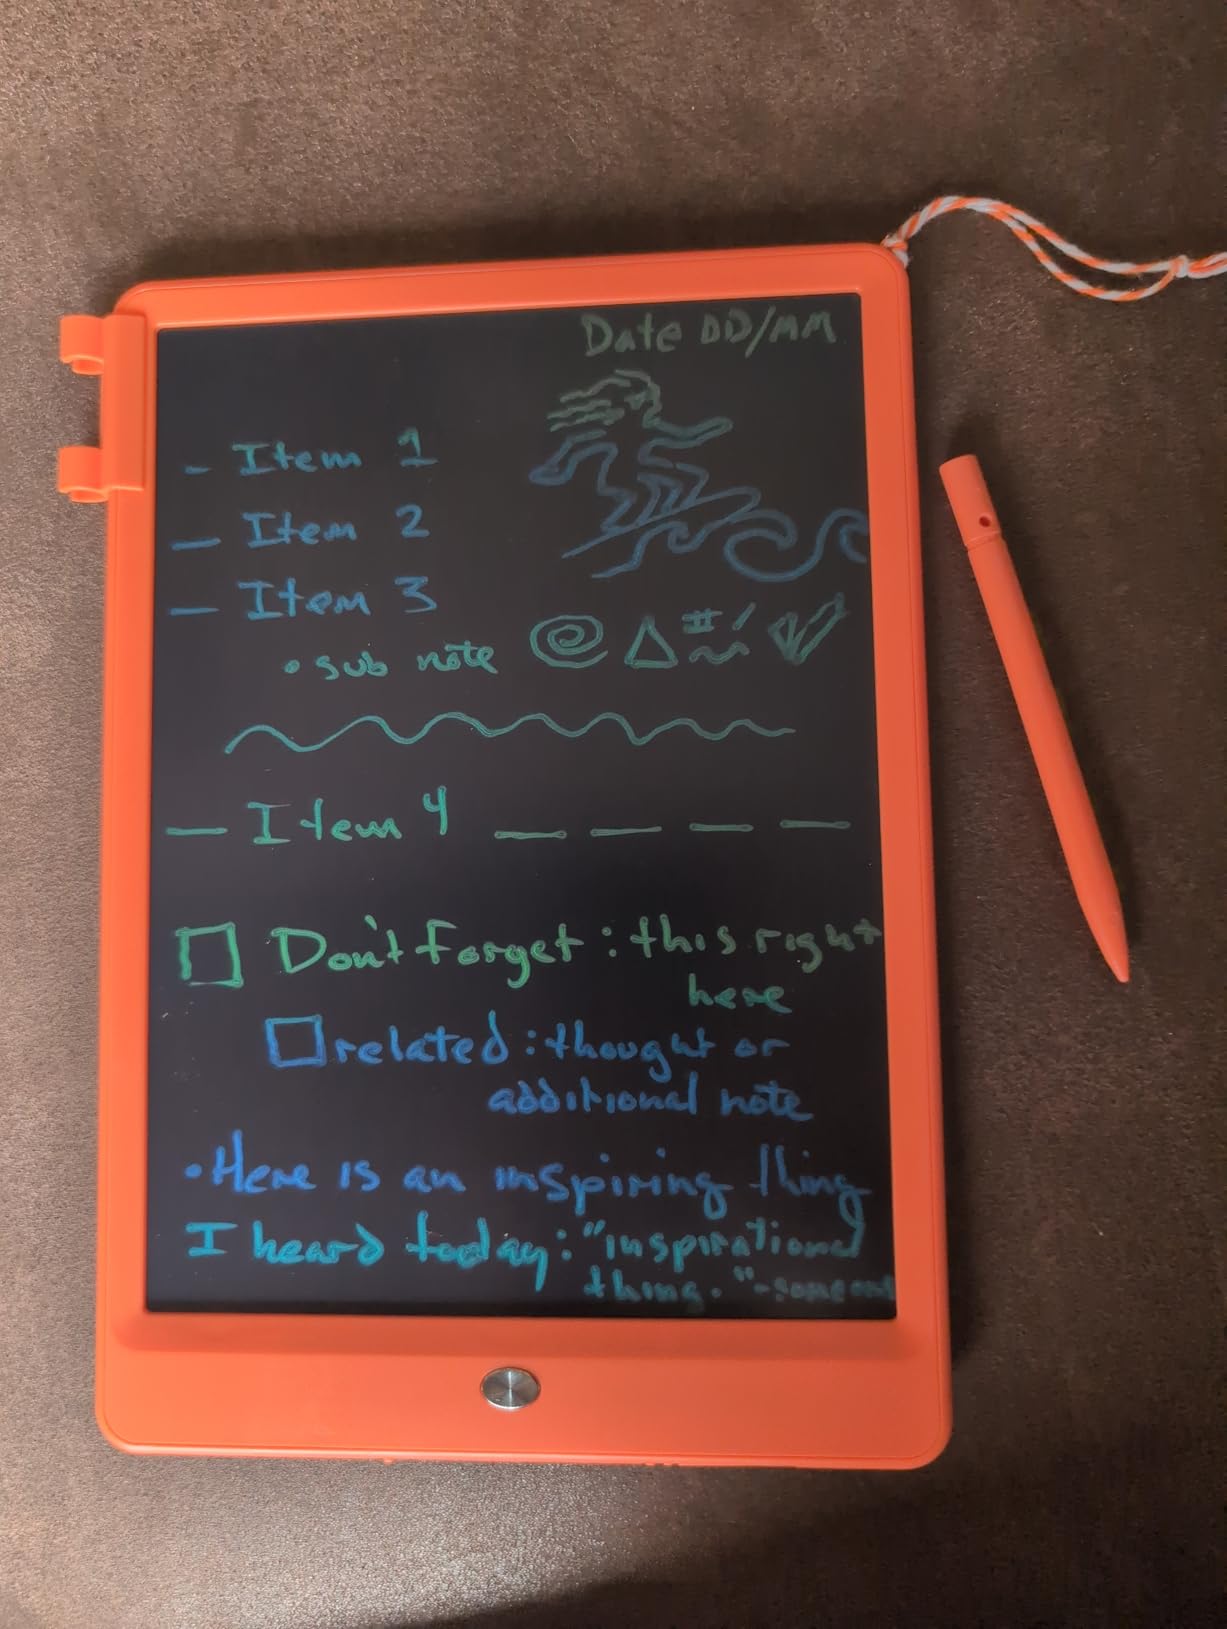 Date DD/MM
- Item 1
— Item 2
— Item 3
• sub note
# ~
— Item 4 — — — —
□ Don't forget: this right
here
□ related: thought or
additional note
• Here is an inspiring thing
I heard today: "inspirational
thing." - someone